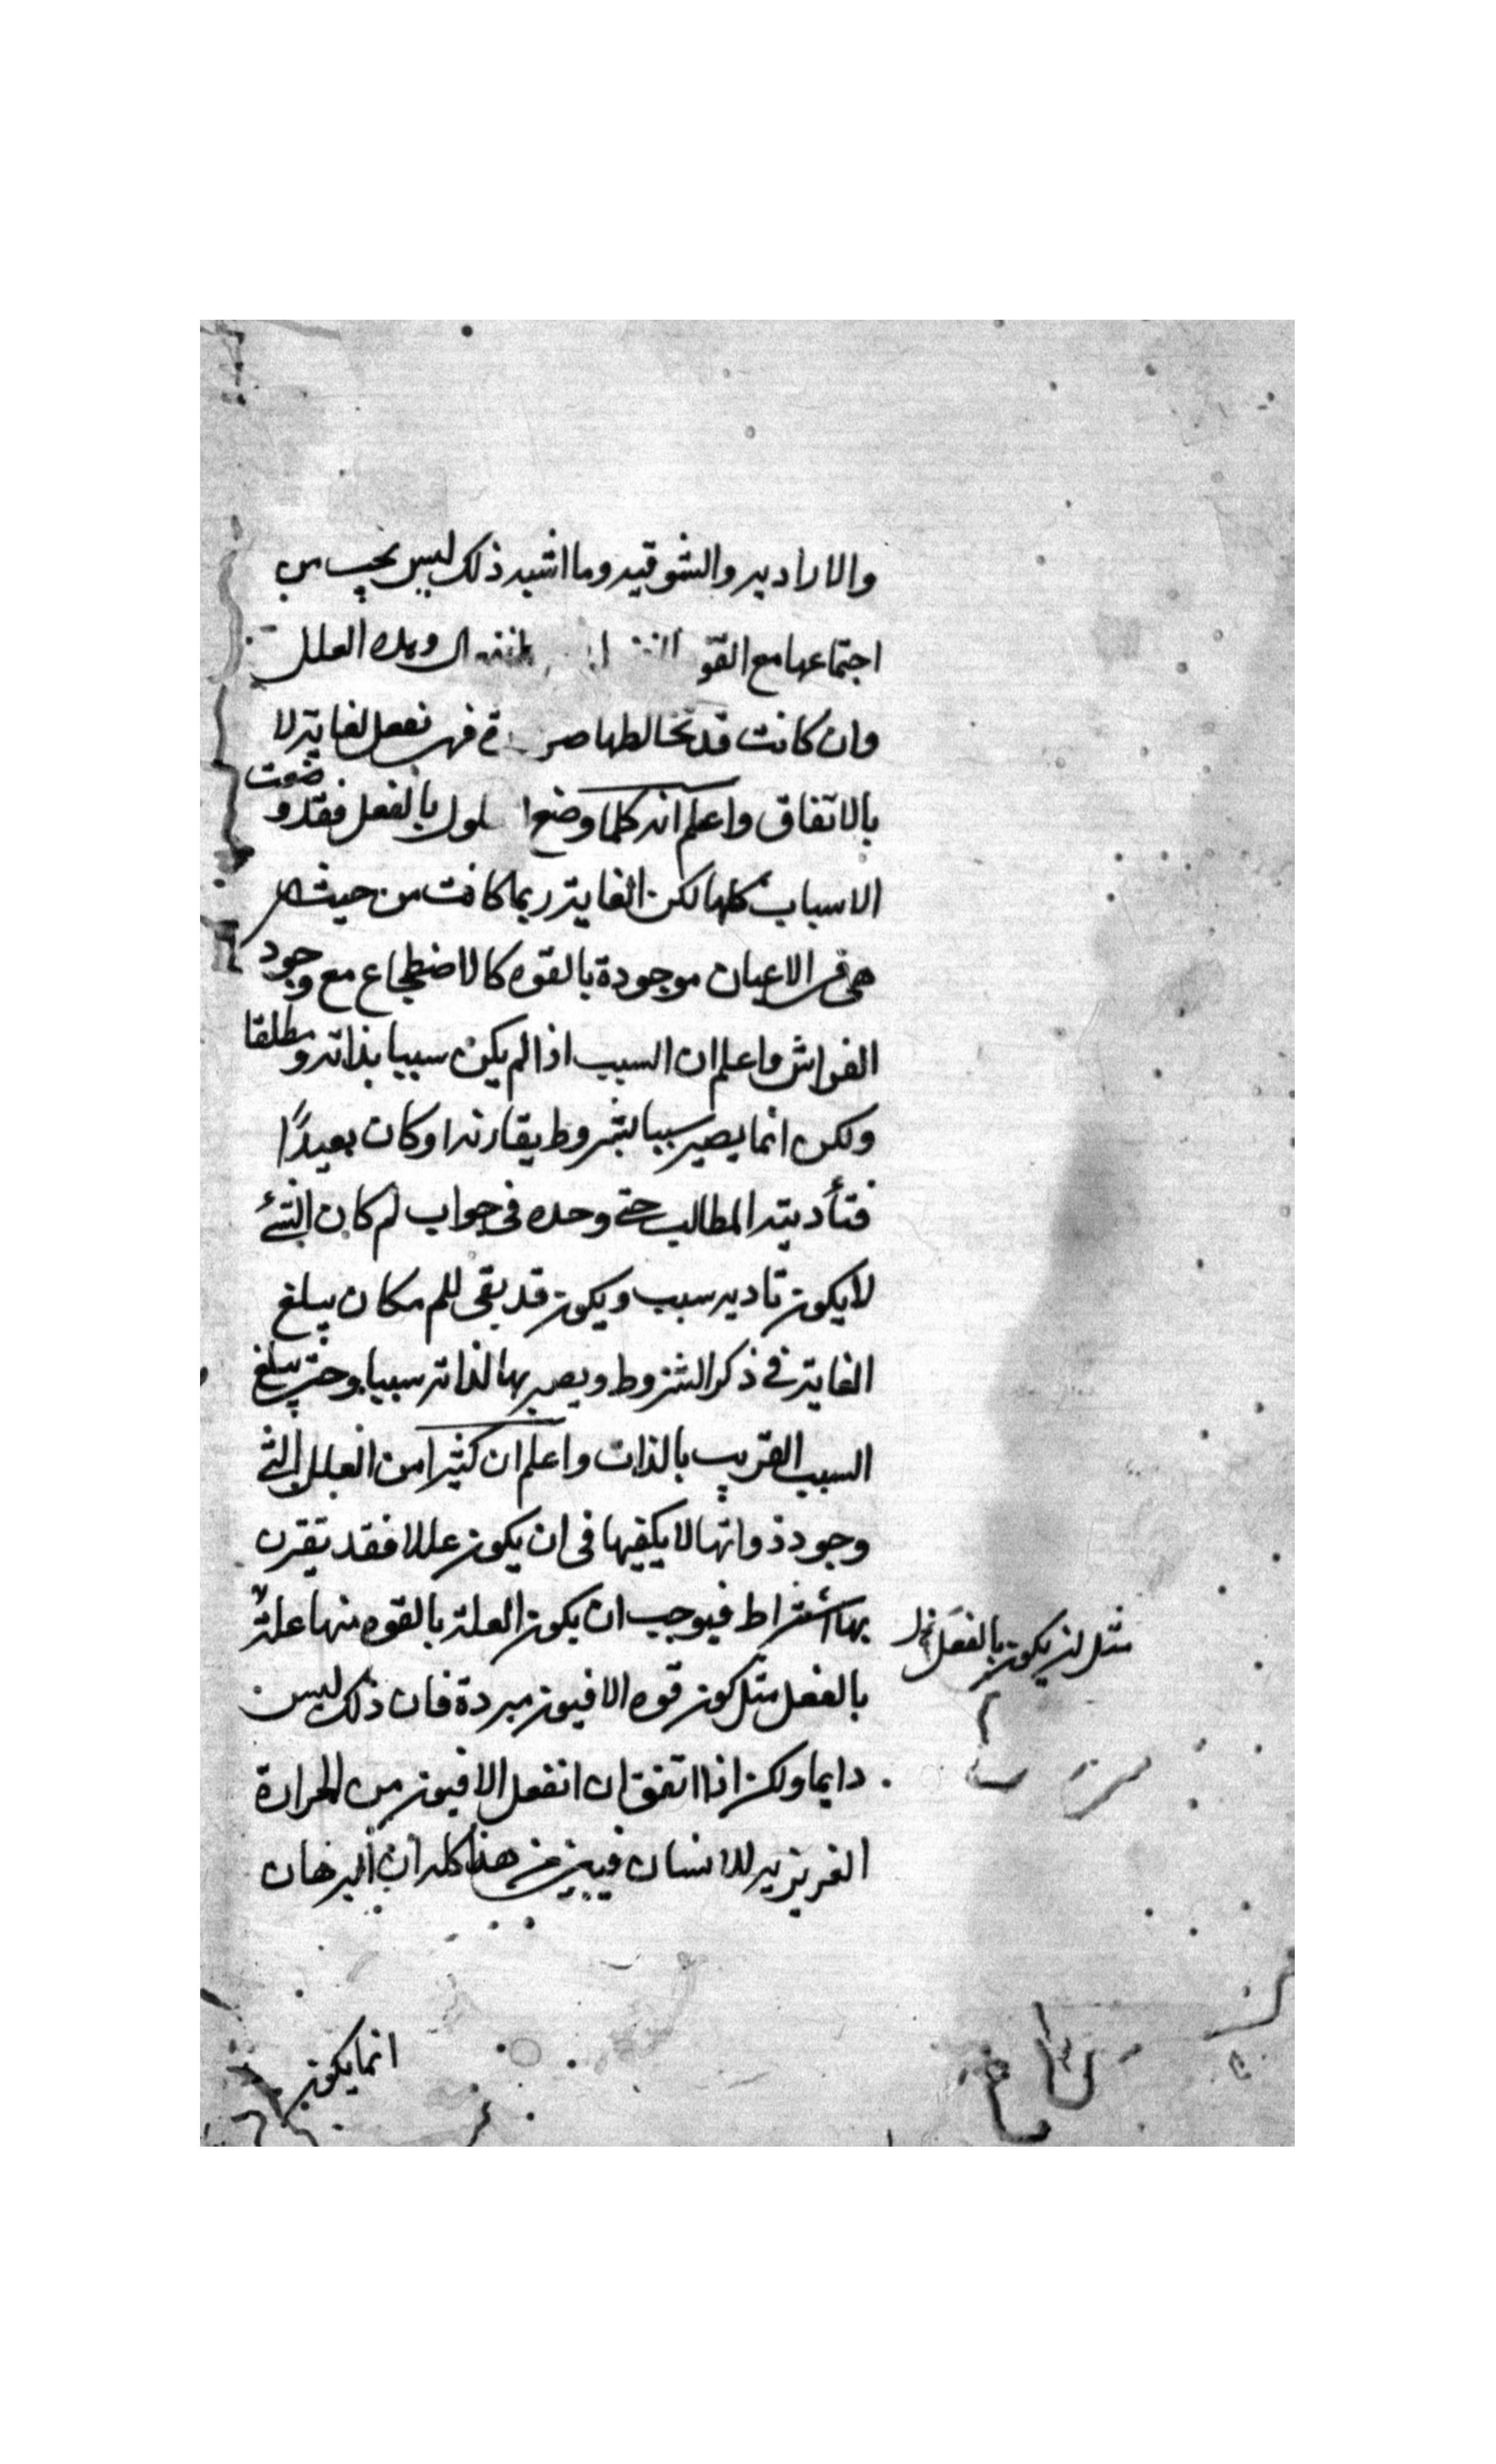 والارادیه والشوقیه وما اشبه ذلک لیس یجب من
اجتماعها مع القو وهذه العلل
وان کانت قد تخالطها فهی تفعل لغایة لا
بالاتفاق واعلم انه کلما وضع بالفعل فقد وضعت
الاسباب کلها لکن الغایة ربما کانت من حیث
هی فی الاعیان موجودة بالقوه کالاضطجاع مع وجود
الفراش واعلم ان السبب اذا لم یکن سببا بذاته ومطلقا
ولکن انما یصیر سببا بشروط یقارنه او کان بعیدًا
فتأدیته المطالب حتی وحده فی جواب لم کان الشئ
لا یکون تادیه سبب ویکون قد بقی للم مکان یبلغ
الغایة فی ذکر الشروط ویصیر بها لذاته سببا وحتی یبلغ
السبب القریب بالذات واعلم ان کثیرا من العلل التی
وجود ذواتها لا یکفیها فی ان یکون عللا فقد یقرن
بها اشتراط فیوجب ان یکون العلة بالقوه منها علة
بالفعل مثل کون قوه الافیون مبردة فان ذلک لیس
دایما ولکن اذا اتفق ان انفعل الافیون من الحرارة
الغریزیه للانسان فبین من هذا کله ان البرهان
مثل ان یکون بالفعل
انما یکون